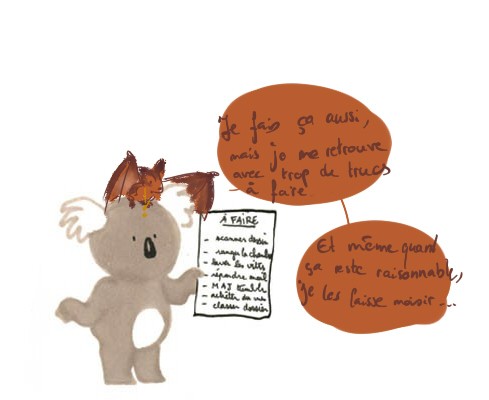 Je fais ça aussi,
mais je me retrouve
avec trop de trucs
à faire
Et même quand
ça reste raisonnable,
je les laisse moisir...
À FAIRE
- scanner dessin
- ranger la chambre
- laver les vitres
- répondre mail
- MAJ tumblr
- acheter du
- classer dossiers